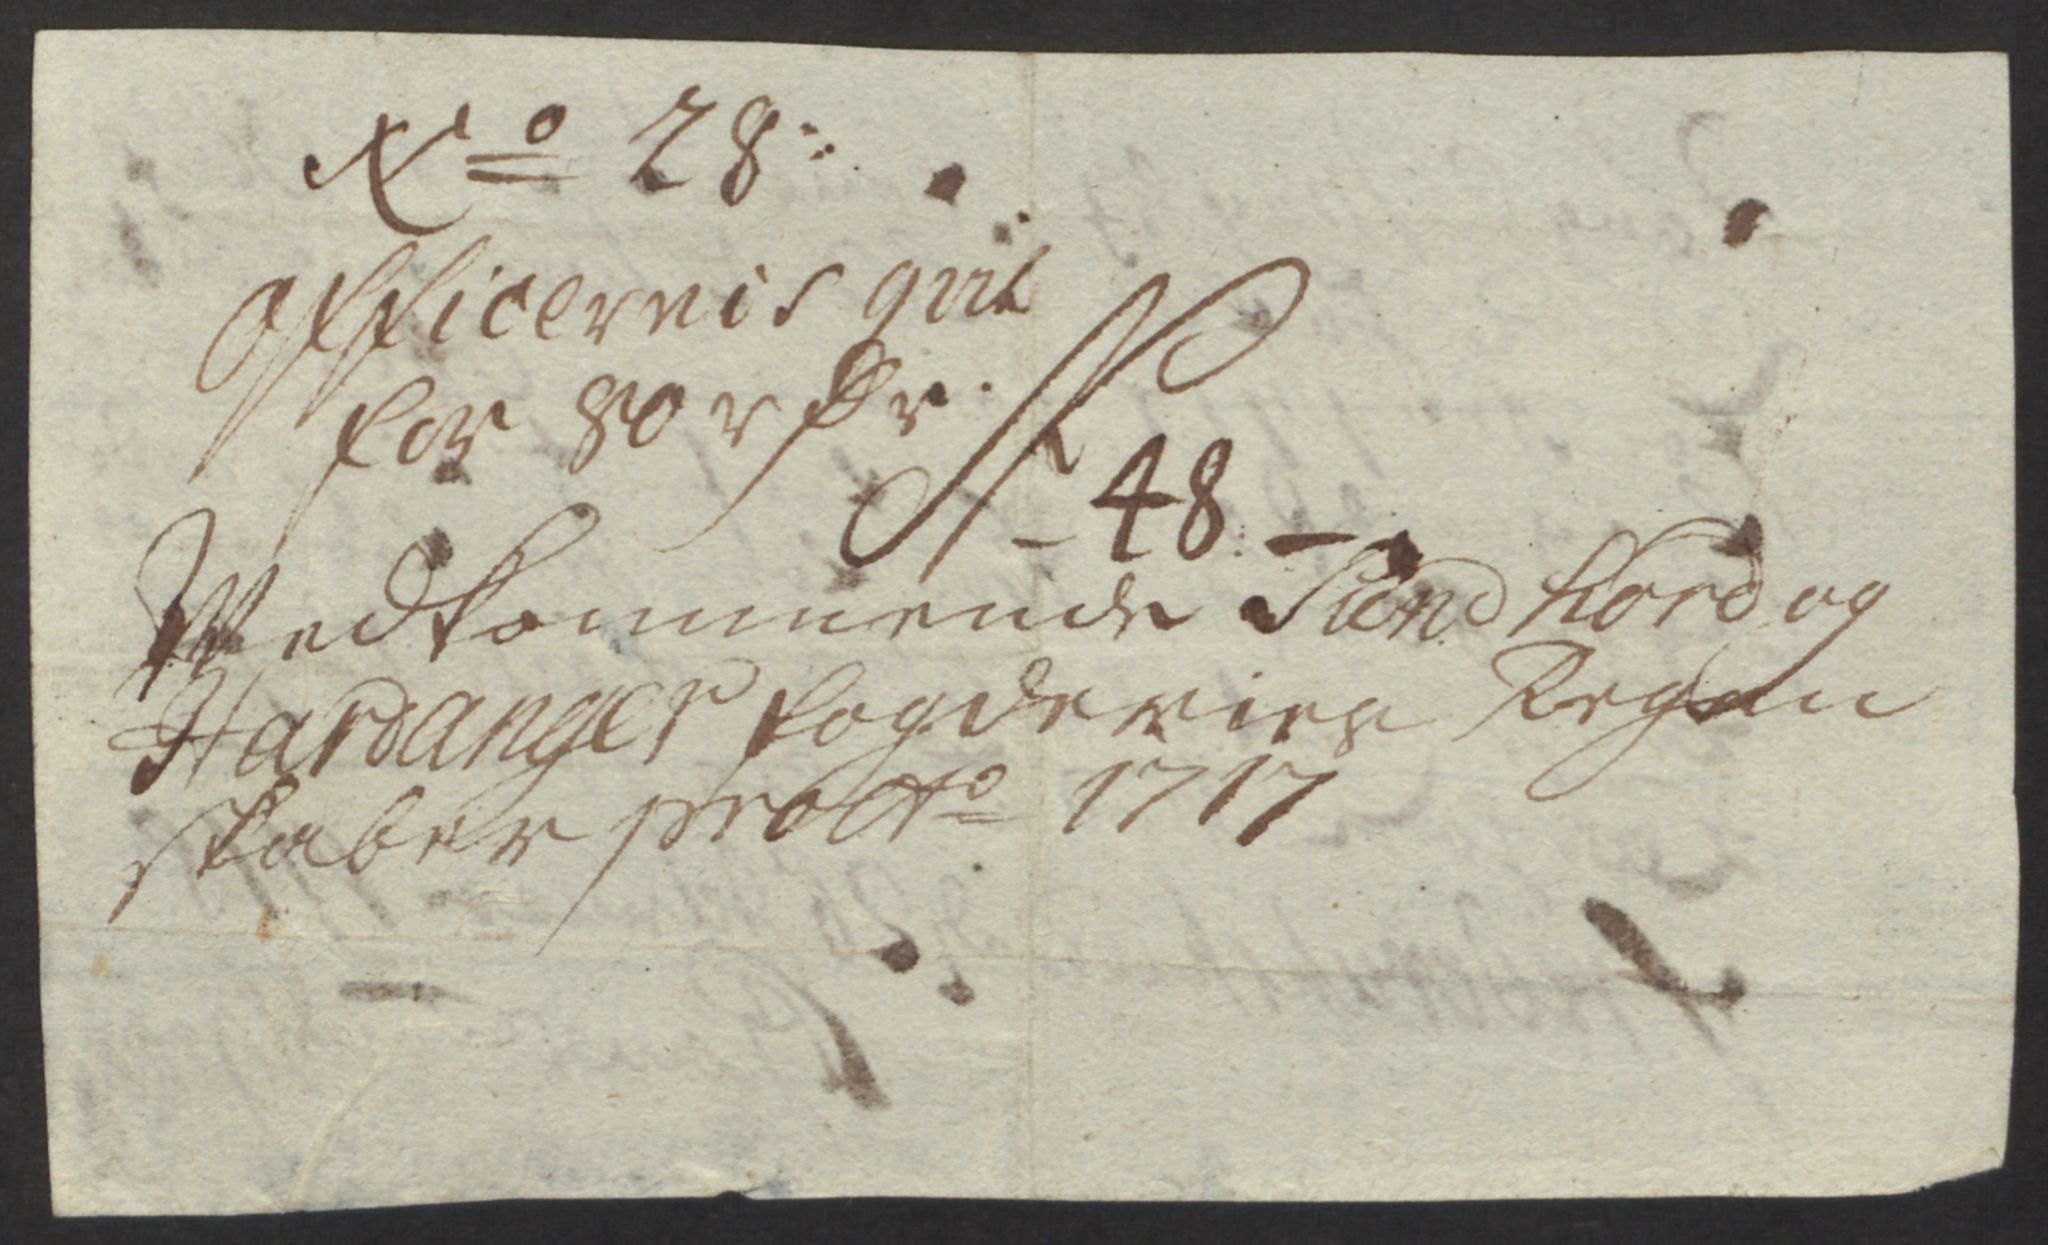 No 28
Officernis qvit
for
48
Wedkommende Sundhord og
Hardanger fogderies Regen
skaber pro Ao 1717